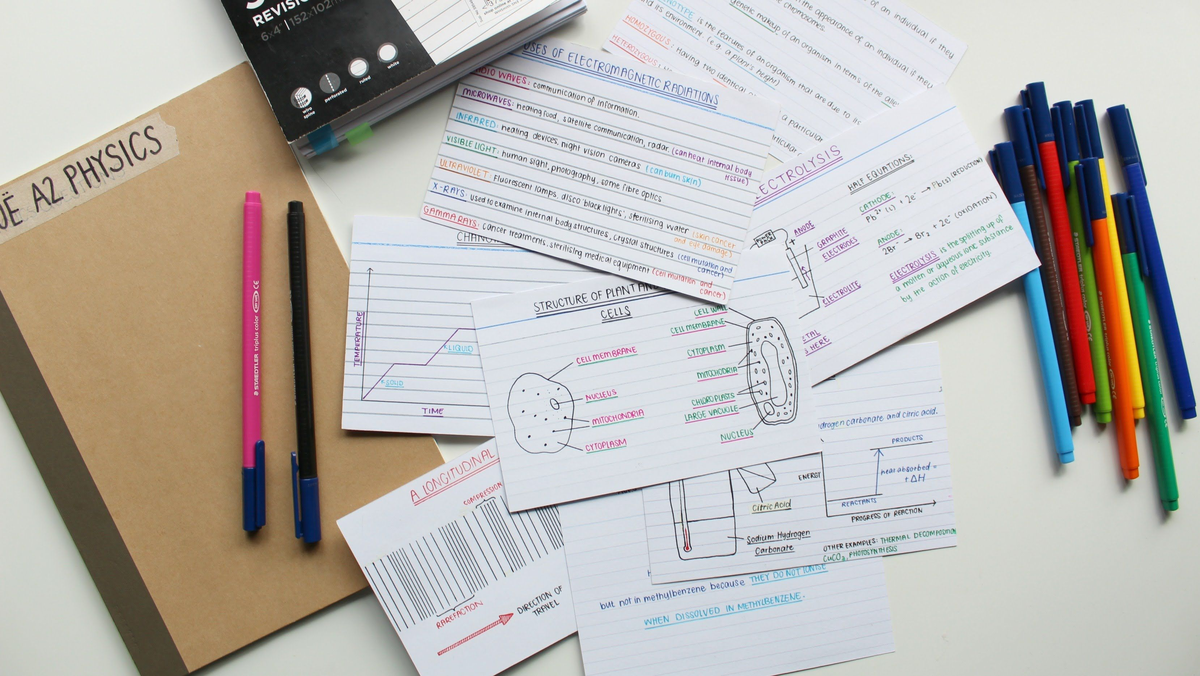 REVISION
6x4" | 152x102m
wire
spike
perforated
ruled
white
OË A2 PHYSICS
STAEDTLER triplus color
CE
USES OF ELECTROMAGNETIC RADIATIONS
RADIO WAVES: communication of information.
MICROWAVES: heating food, satellite communication, radar (can heat internal body
tissue)
INFRARED: heating devices, night vision cameras (can burn skin)
VISIBLE LIGHT: human sight, photography, some fibre optics
ULTRAVIOLET: fluorescent lamps, disco 'black lights', sterilising water (skin cancer
and eye damage)
X-RAYS: used to examine internal body structures, crystal structures (cell mutation and
cancer)
GAMMA RAYS: cancer treatments, sterilising medical equipment (cell mutation and
cancer)
the appearance of an individual if they
chromosomes.
genetic makeup of an organism in terms of the
is the features of an organism that are due to
its environment (e.g. a plant's height)
HOMOZYGOUS: Having two identical
HETEROZYGOUS
a particular
ECTROLYSIS
HALF EQUATIONS:
CATHODE:
Pb²⁺(l) + 2e⁻ → Pb(s) (REDUCTION)
ANODE:
2Br⁻ → Br₂ + 2e⁻ (OXIDATION)
ELECTROLYSIS is the splitting up of
a molten or aqueous ionic substance
by the action of electricity.
ANODE
GRAPHITE
ELECTRODES
ELECTROLITE
TAL
HERE
TEMPERATURE
SOLID
LIQUID
TIME
STRUCTURE OF PLANT AN
CELLS
CELL MEMBRANE
NUCLEUS
MITOCHONDRIA
CYTOPLASM
CELL WALL
CELL MEMBRANE
CYTOPLASM
MITOCHODRIA
CHLOROPLASTS
LARGE VACUOLE
NUCLEUS
A LONGITUDINAL
COMPRESSION
RAREFACTION
DIRECTION OF
TRAVEL
drogen carbonate and citric acid.
ENERGY
PRODUCTS
heat absorbed
+ΔH
REACTANTS
PROGRESS OF REACTION
Citric Acid
Sodium Hydrogen
Carbonate
OTHER EXAMPLES: THERMAL DECOMPOSITION
CuCO₃, PHOTOSYNTHESIS
but not in methylbenzene because THEY DO NOT IONISE
WHEN DISSOLVED IN METHYLBENZENE.